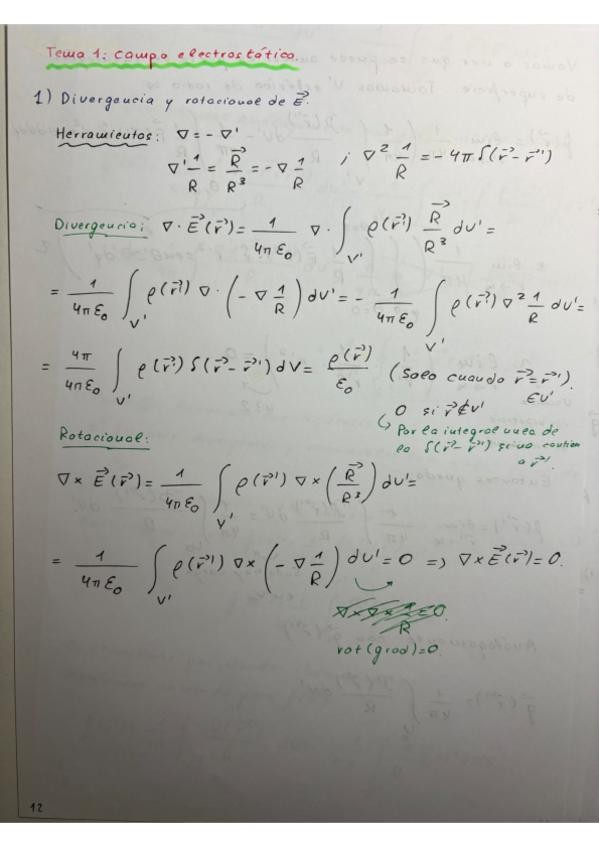 Tema 1: Campo electrostático.
1) Divergencia y rotacional de E⃗.
Herramientas: ∇ = - ∇'
∇' 1/R = R⃗/R³ = - ∇ 1/R ; ∇² 1/R = - 4π δ(r⃗ - r⃗')
Divergencia: ∇ · E⃗(r⃗) = 1/4πε₀ ∇ · ∫_V' ρ(r⃗') R⃗/R³ dv' =
= 1/4πε₀ ∫_V' ρ(r⃗') ∇ · (- ∇ 1/R) dv' = - 1/4πε₀ ∫_V' ρ(r⃗') ∇² 1/R dv' =
= 4π/4πε₀ ∫_V' ρ(r⃗') δ(r⃗ - r⃗') dV = ρ(r⃗)/ε₀ (Solo cuando r⃗ = r⃗').
∈ v'
0 si r⃗ ∉ v'
↳ Por la integral de
la δ(r⃗ - r⃗') si no
a r⃗'.
Rotacional:
∇ × E⃗(r⃗) = 1/4πε₀ ∫_V' ρ(r⃗') ∇ × (R⃗/R³) dv' =
= 1/4πε₀ ∫_V' ρ(r⃗') ∇ × (- ∇ 1/R) dv' = 0 => ∇ × E⃗(r⃗) = 0.
rot(grad) = 0.
12